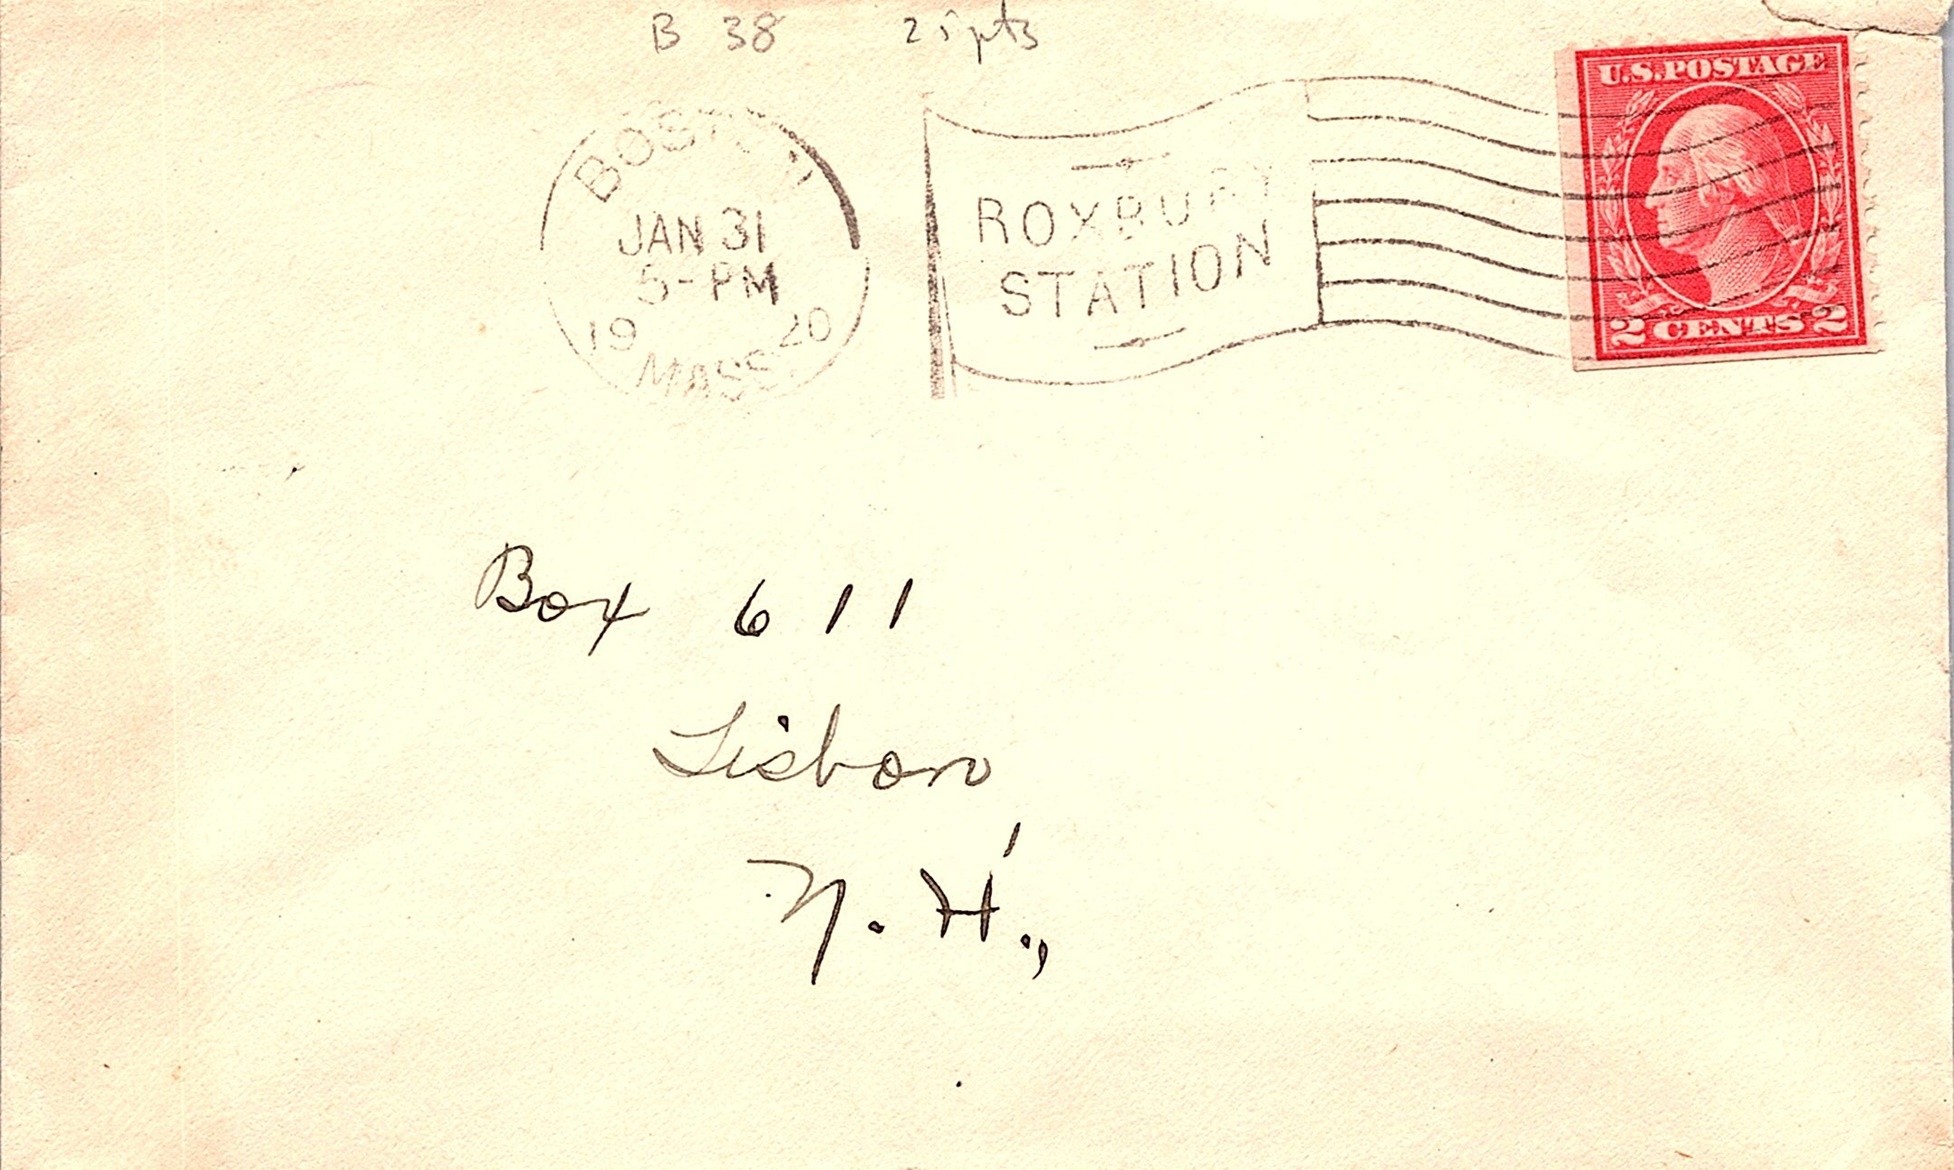 B 38 25 pts
U.S.POSTAGE
BOSTON
JAN 31
5-PM
19 20
MASS.
ROXBURY
STATION
2 CENTS 2
Box 611
Lisbon
N. H.,